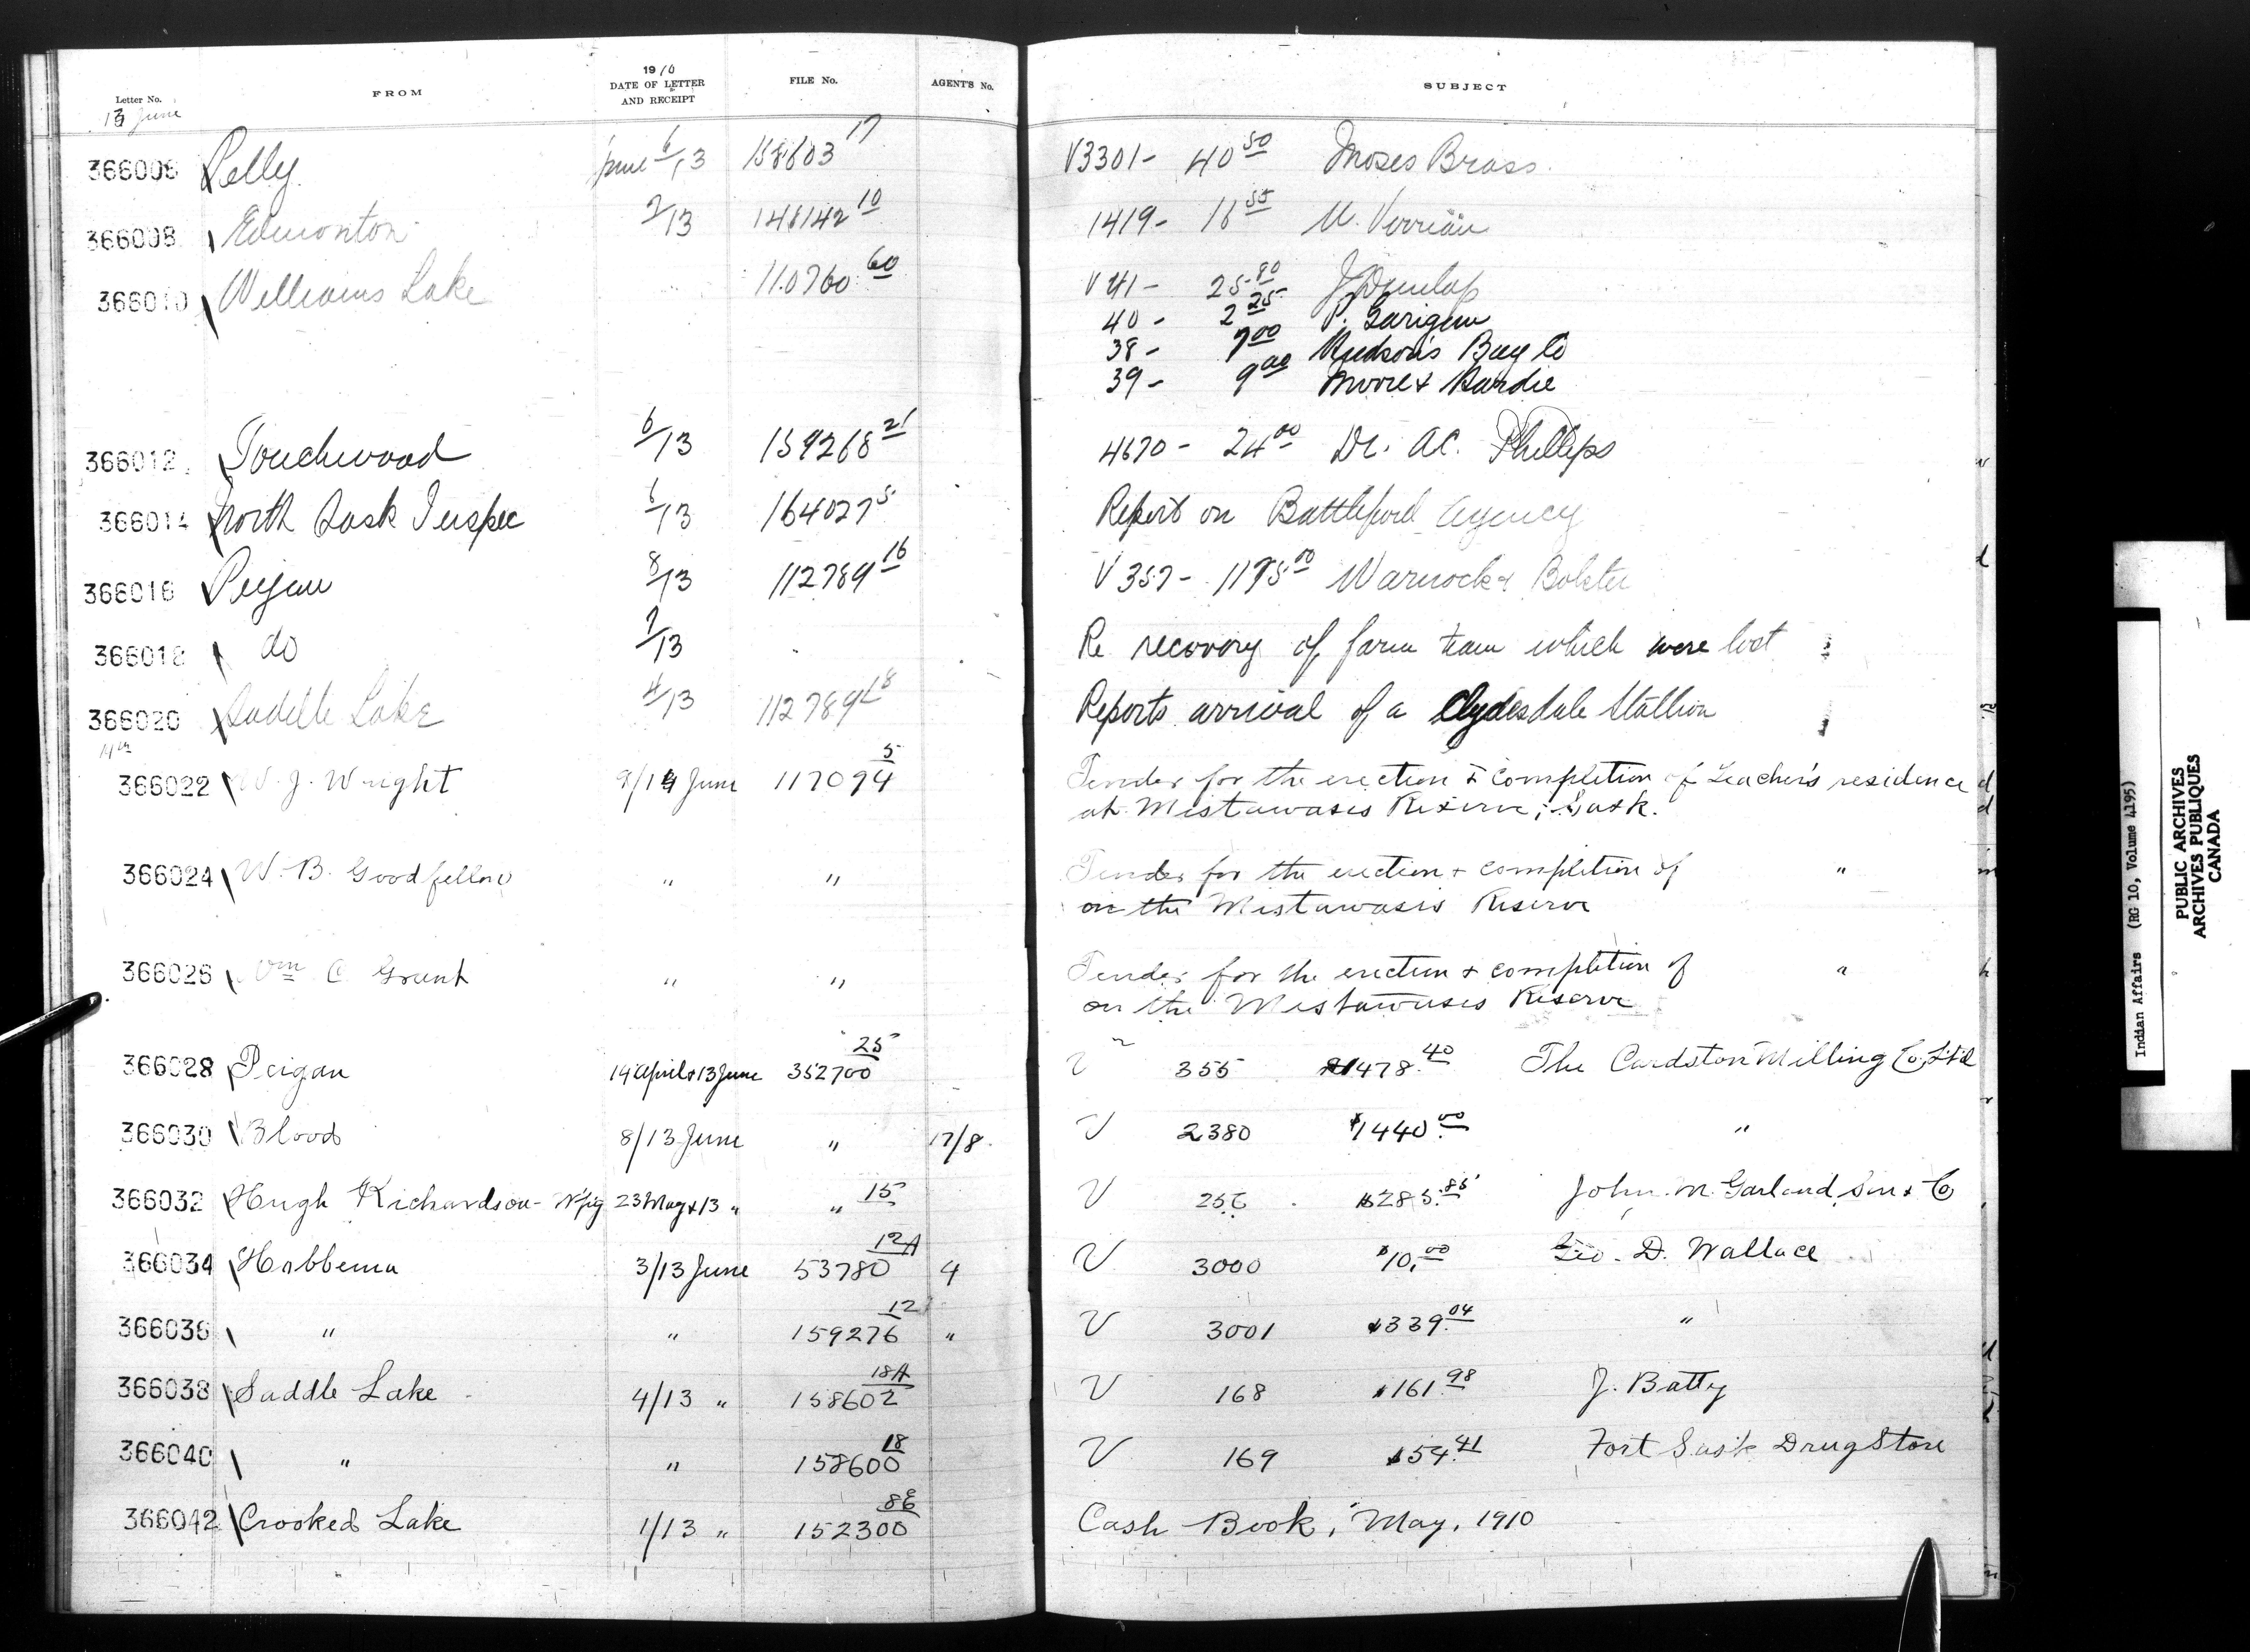 1910
Letter No. FROM DATE OF LETTER AND RECEIPT FILE No. AGENT'S No. SUBJECT
13 June
366006 Pelly June 6/13 158603 17 V3301- 40 50 Moses Brass
366008 Edmonton 7/13 148142 10 1419- 16 55
366010 Williams Lake 110760 60 V 41- 25 80 J Dunlap
40- 2 25 P.
38- 7 00 Hudson's Bay Co
39- 9 00 Moore &
366012 Touchwood 6/13 159268 21 4670- 24 00 Dr. A.C. Phillips
366014 North Sask Inspec 6/13 164027 5 Report on Battleford Agency
366016 Peigan 8/13 112789 16 V 357- 1195 00 Warnock & Bolster
366018 do 7/13 Re recovery of farm team which were lost
366020 Saddle Lake 4/13 112789 18 Reports arrival of a Clydesdale Stallion
14th
366022 W. J. Wright 9/14 June 117094 5 Tender for the erection & completion of Teacher's residence
at Mistawasis Reserve, Sask.
366024 W. B. Goodfellow " " Tender for the erection & completion of "
on the Mistawasis Reserve
366026 Wm C Grant " " Tender for the erection & completion of "
on the Mistawasis Reserve
366028 Peigan 14 April & 13 June 352700 25 V 355 $1478.40 The Cardston Milling Co Ltd
366030 Blood 8/13 June " 17/8 V 2380 $1440.00 "
366032 Hugh Richardson - Wpg 23 May & 13 " " 15 V 256 $285.85 John M. Garland, Son & Co
366034 Hobbema 3/13 June 53780 12A 4 V 3000 $10.00 Geo. D. Wallace
366036 " " 159276 12 " V 3001 $339.04 "
366038 Saddle Lake 4/13 " 158602 18A V 168 $161.98 J. Batty
366040 " " 158600 18 V 169 $54.41 Fort Sask Drug Store
366042 Crooked Lake 1/13 " 152300 8E Cash Book, May, 1910
Indian Affairs (RG 10, Volume 4195)
PUBLIC ARCHIVES
ARCHIVES PUBLIQUES
CANADA